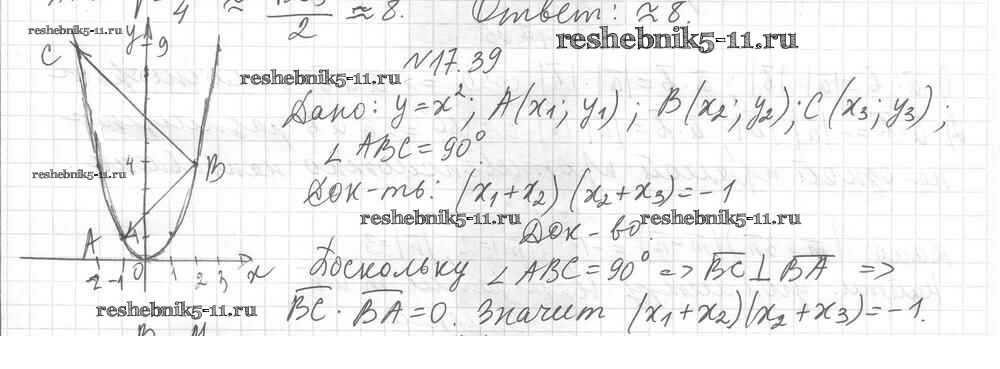 √ = /4 ≈ /2 ≈ 8. Ответ: ≈ 8.
reshebnik5-11.ru
reshebnik5-11.ru
y 9
C
N17.39
reshebnik5-11.ru
Дано: y=x²; A(x₁; y₁); B(x₂; y₂); C(x₃; y₃);
∠ABC=90°.
4 B
reshebnik5-11.ru
Док-ть: (x₁+x₂)(x₂+x₃)=-1
reshebnik5-11.ru reshebnik5-11.ru
Док-во.
A
-2 -1 0 1 2 3 x
Поскольку ∠ABC=90° => BC⊥BA =>
BC · BA=0. Значит (x₁+x₂)(x₂+x₃)=-1.
reshebnik5-11.ru